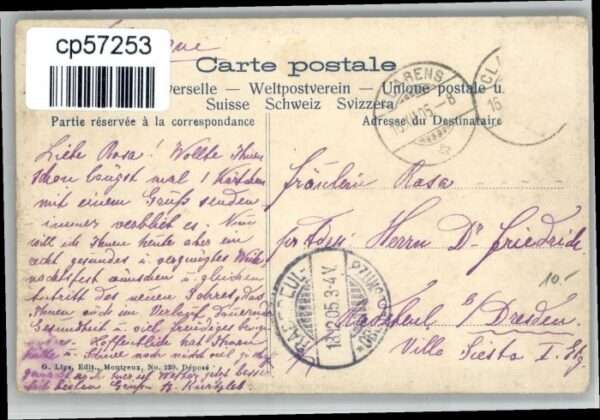 cp57253
Carte postale
Weltpostverein — Unione postale u.
Suisse Schweiz Svizzera
Partie réservée à la correspondance
Adresse du Destinataire
CLARENS
16.XII.05.-8
CLA
16
Liebe Rosa! Wollte Ihnen
schon längst mal 1 Kärtchen
mit einem Gruß senden
immer verblieb es. Nun
will ich Ihnen heute aber ein
recht gesundes & vergnügtes Weih-
nachtsfest wünschen & glücklichen
Eintritt des neuen Jahres, das
Ihnen auch im Verlauf dauernde
Gesundheit & viel freudiges
Hoffentlich hat Ihnen
noch nicht viel
besser
mit besten Gruß
Fräulein Rosa
pr Adr. Herrn Dr Friedrich
Radebeul b/Dresden
Villa Siesta I. Etg.
10.-
RADEBEUL
18.12.05.3-4V.
G. Lips, Edit., Montreux, No. 120. Déposé